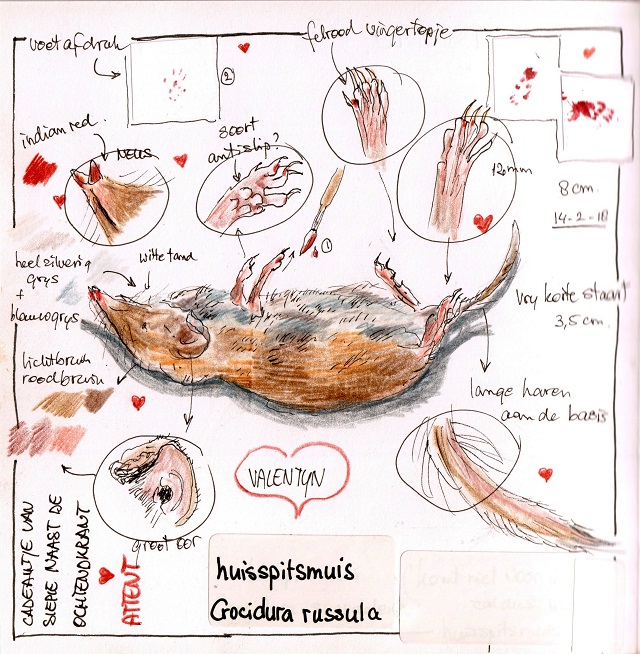 voetafdruk
②
felrood vingertopje
indian red.
NEUS
soort
antislip?
12 mm
8 cm
14-2-18
①
heel zilverig
grijs
+
blauwgrijs
witte tand
vrij korte staart
3,5 cm.
lichtbruin
roodbruin
lange haren
aan de basis
groot oor
VALENTIJN
CADEAUTJE VAN
SIEPIE NAAST DE
OCHTENDKRANT
ATTENT
huisspitsmuis
Crocidura russula